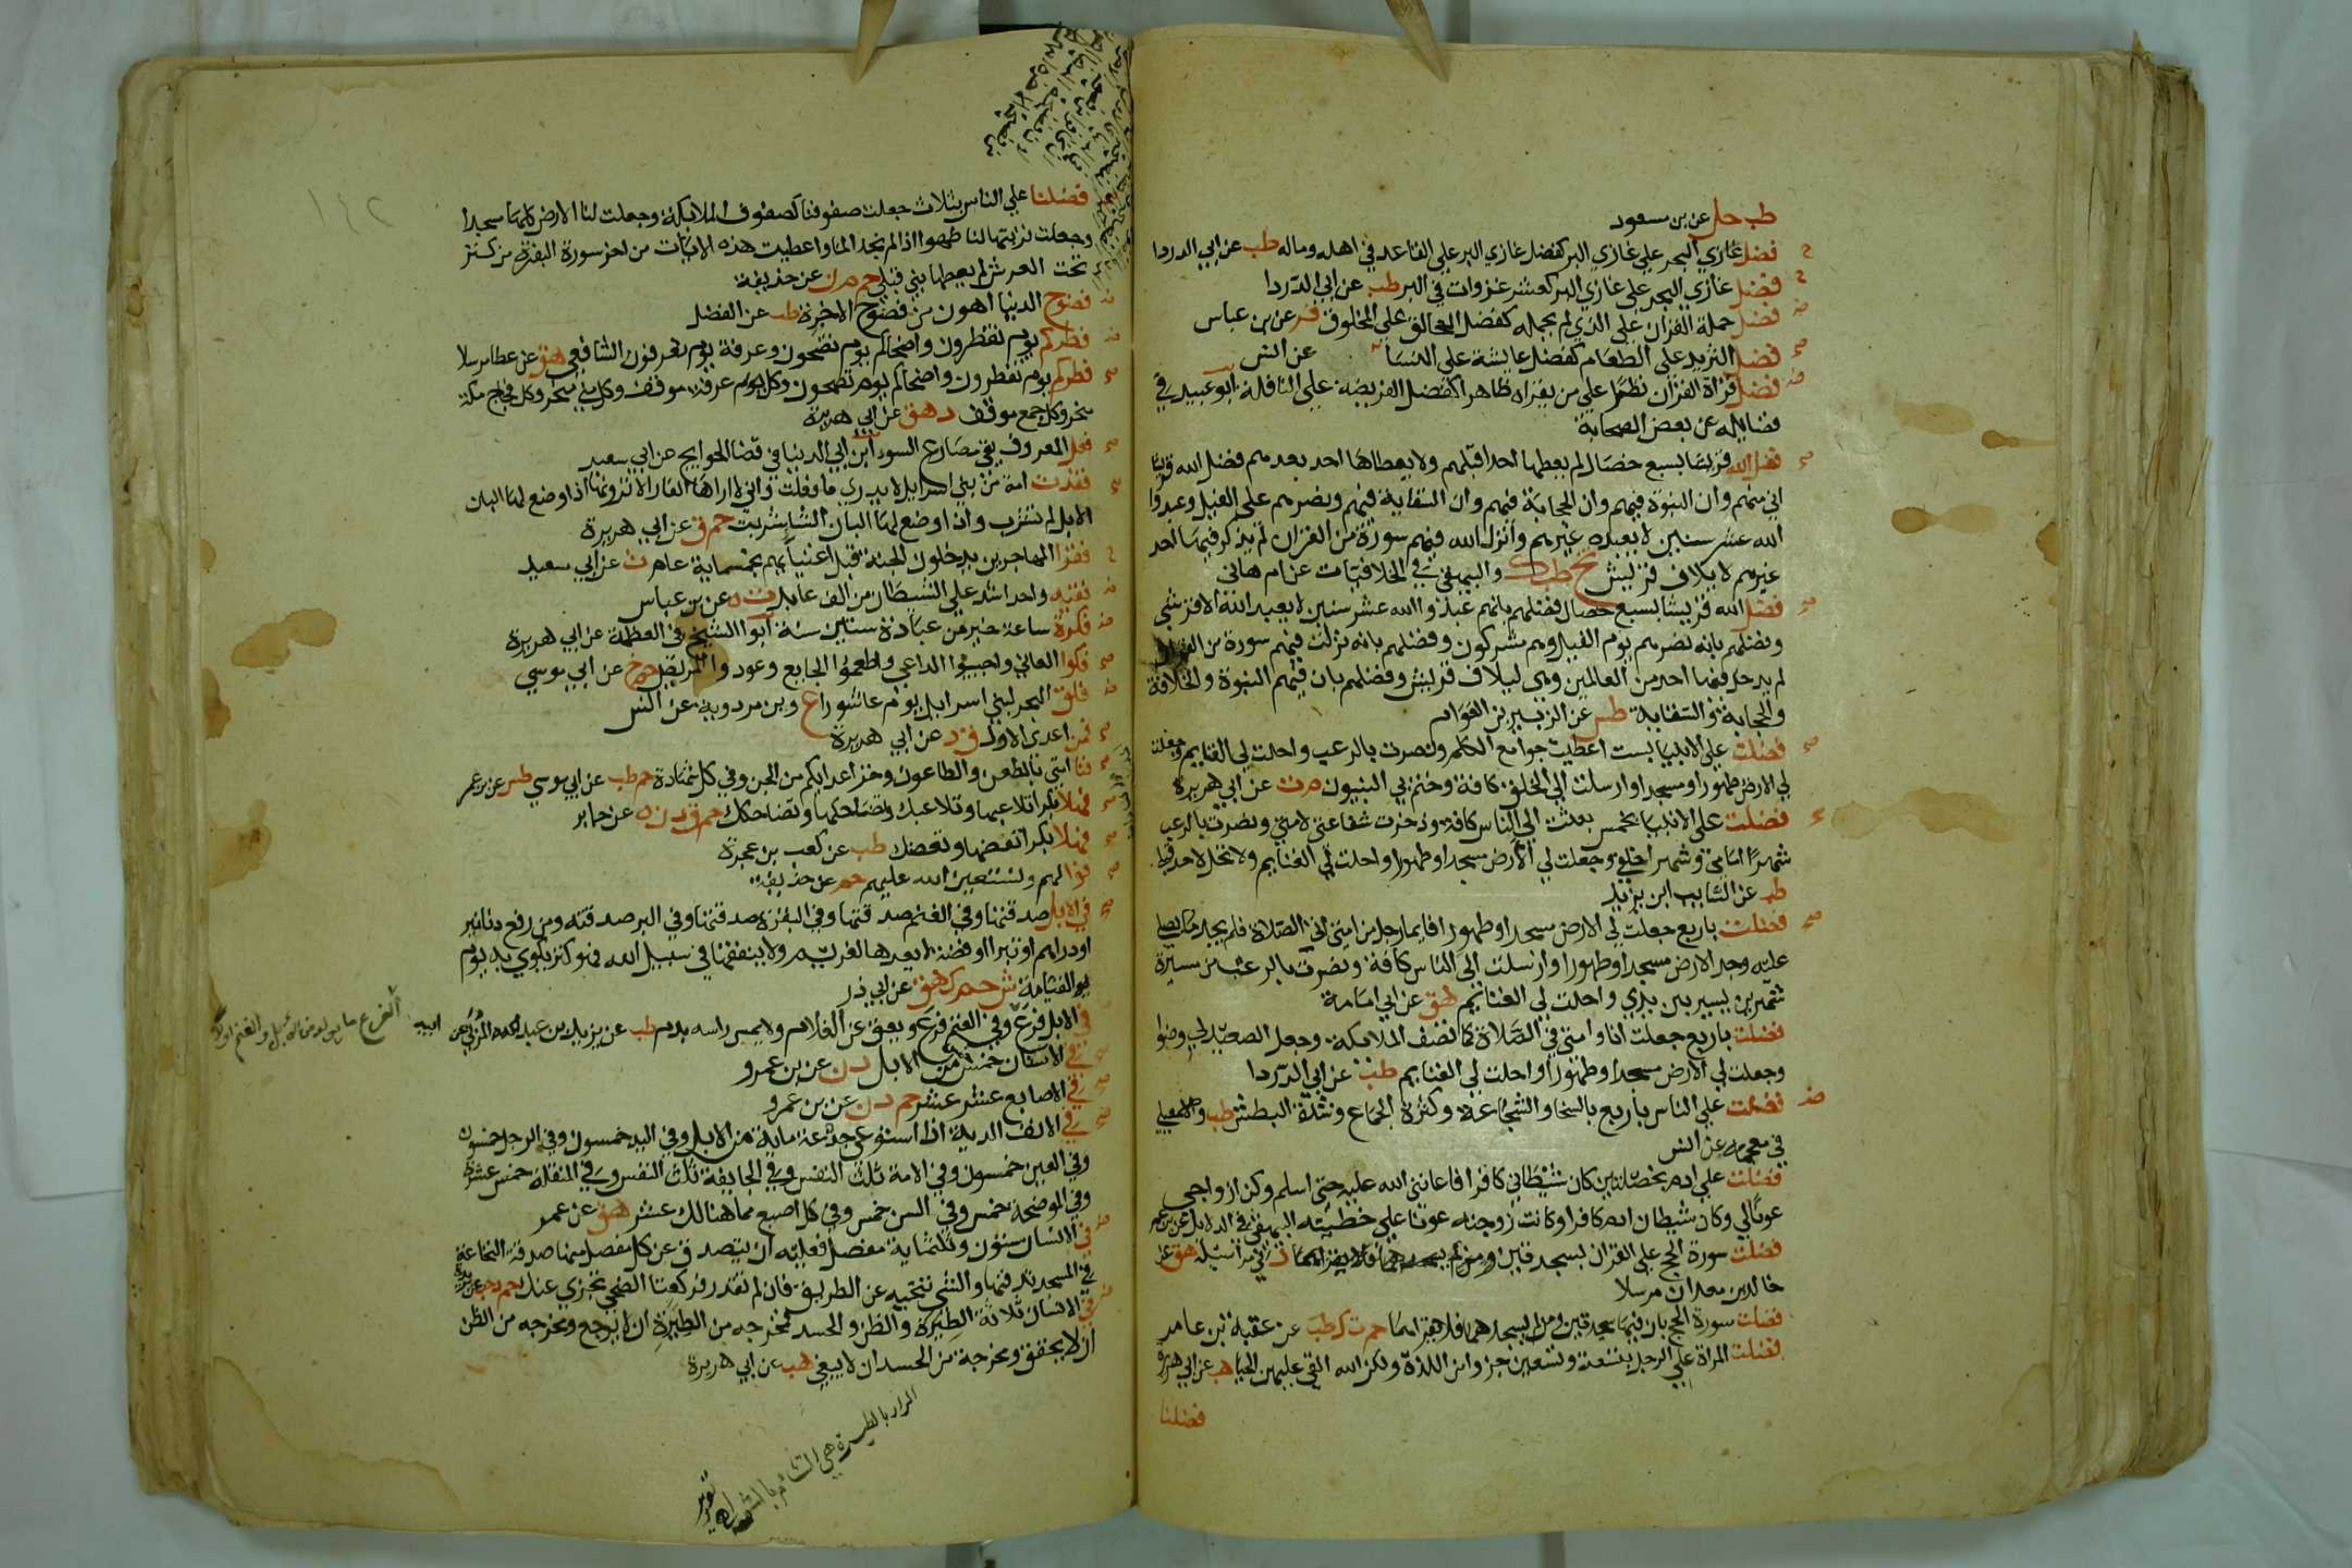 طب حل عن بن سعود
فضل غازي البحر علي غازي البر كفضل غازي البر علي القاعد في اهله وماله طب عن ابي الدردا
فضل غازي البحر علي غازي البر كعشر غزوات في البر طب عن ابي الدردا
فضل حملة القران علي الذي لم يحمله كفضل الخالق علي المخلوق فر عن بن عباس
فضل الثريد علي الطعام كفضل عايشة علي النسا عن انس
فضل قراة القران نظرا علي من يقراه ظاهرا كفضل الفريضة علي النافلة ابو عبيد في
فضايله عن بعض الصحابة
فضل الله قريشا بسبع خصال لم يعطها احد قبلهم ولا يعطاها احد بعدهم فضل الله قريشا
اني منهم وان النبوة فيهم وان الحجابة فيهم وان السقاية فيهم ونصرهم علي الفيل وعبدوا
الله عشر سنين لا يعبده غيرهم وانزل الله فيهم سورة من القران لم يذكر فيها احد
غيرهم لايلاف قريش تخ طب ك والبيهقي في الخلافيات عن ام هاني
فضل الله قريشا بسبع خصال فضلهم بانهم عبدوا الله عشر سنين لا يعبد الله الا قرشي
وفضلهم بانه نصرهم يوم الفيل وهم مشركون وفضلهم بانه نزلت فيهم سورة من القران
لم يدخل فيها احد من العالمين وهي ليلاف قريش وفضلهم بان فيهم النبوة والخلافة
والحجابة والسقاية طس عن الزبير بن العوام
فضلت علي الانبيا بست اعطيت جوامع الكلم ونصرت بالرعب واحلت لي الغنايم وجعلت
لي الارض طهورا ومسجدا وارسلت الي الخلق كافة وختم بي النبيون م ت عن ابي هريرة
فضلت علي الانبيا بخمس بعثت الي الناس كافة وذخرت شفاعتي لامتي ونصرت بالرعب
شهرا امامي وشهرا خلفي وجعلت لي الارض مسجدا وطهورا واحلت لي الغنايم ولا تحل لاحد قبلي
طب عن السايب ابن يزيد
فضلت باربع جعلت لي الارض مسجدا وطهورا فايما رجل من امتي اتي الصلاة فلم يجد ما يصلي
عليه وجد الارض مسجدا وطهورا وارسلت الي الناس كافة ونصرت بالرعب من مسيرة
شهرين يسير بين يدي واحلت لي الغنايم هق عن ابي امامة
فضلت باربع جعلت انا وامتي في الصلاة كما تصف الملايكة وجعل الصعيد لي وضوا
وجعلت لي الارض مسجدا وطهورا واحلت لي الغنايم طب عن ابي الدردا
فضلت علي الناس باربع بالسخا والشجاعة وكثرة الجماع وشدة البطش طب والاسمعيلي
في معجمه عن انس
فضلت علي ادم بخصلتين كان شيطاني كافرا فاعانني الله عليه حتي اسلم وكن ازواجي
عونا لي وكان شيطان ادم كافرا وكانت زوجته عونا علي خطيئته البيهقي في الدلايل عن بن عمر
فضلت سورة الحج علي القران بسجدتين د في مراسيله هق عن
خالد بن معدان مرسلا
فضلت سورة الحج بان فيها سجدتين ومن لم يسجدهما فلا يقراهما حم ت ك طب عن عقبة بن عامر
فضلت المراة علي الرجل بتسعة وتسعين جزوا من اللذة ولكن الله القي عليهن الحيا هب عن ابي هريرة
فضلنا
١٤٢
فضلنا علي الناس بثلاث جعلت صفوفنا كصفوف الملايكة وجعلت لنا الارض كلها مسجدا
وجعلت تربتها لنا طهورا اذا لم نجد الما واعطيت هذه الايات من اخر سورة البقرة من كنز
تحت العرش لم يعطها نبي قبلي حم م ن عن حذيفة
فضوح الدنيا اهون من فضوح الاخرة طب عن الفضل
فطركم يوم تفطرون واضحاكم يوم تضحون وعرفة يوم تعرفون الشافعي هق عن عطا مرسلا
فطركم يوم تفطرون واضحاكم يوم تضحون وكل عرفة موقف وكل مني منحر وكل فجاج مكة
منحر وكل جمع موقف د هق عن ابي هريرة
فعل المعروف يقي مصارع السوء ابن ابي الدنيا في قضا الحوايج عن ابي سعيد
فقدت امة من بني اسرايل لا يدري ما فعلت واني لا اراها الا الفار الا ترونها اذا وضع لها البان
الابل لم تشرب واذا وضع لها البان الشا شربت حم ق عن ابي هريرة
فقرا المهاجرين يدخلون الجنة قبل اغنيايهم بخمسماية عام ت عن ابي سعيد
فقيه واحد اشد علي الشيطان من الف عابد ت ه عن بن عباس
فكرة ساعة خير من عبادة ستين سنة ابو الشيخ في العظمة عن ابي هريرة
فكوا العاني واجيبوا الداعي واطعموا الجايع وعودوا المريض حم خ عن ابي موسي
فلق البحر لبني اسرايل يوم عاشورا ع وبن مردوية عن انس
فمن اعدي الاول ق د عن ابي هريرة
فنا امتي بالطعن والطاعون وخز اعدايكم من الجن وفي كل شهادة حم طب عن ابي موسي طس عن بن عمر
فهلا بكرا تلاعبها وتلاعبك وتضاحكها وتضاحكك حم ق د ن ه عن جابر
فهلا بكرا تعضها وتعضك طب عن كعب بن عجرة
فوا لهم ونستعين الله عليهم حم عن حذيفة
في الابل صدقتها وفي الغنم صدقتها وفي البقر صدقتها وفي البر صدقته ومن رفع دنانير
او دراهم او تبرا او فضة لا يعدها لغريم ولا ينفقها في سبيل الله فهو كنز يكوي به يوم
القيامة ش حم ك هق عن ابي ذر
في الابل فرع وفي الغنم فرع ويعق عن الغلام ولا يمس راسه بدم طب عن يزيد بن عبد الله المزني عن
ابيه
في الاسنان خمس من الابل د ن عن بن عمرو
في الاصابع عشر عشر حم د ن عن بن عمرو
في الانف الدية اذا استوعي جدعه ماية من الابل وفي اليد خمسون وفي الرجل خمسون
وفي العين خمسون وفي الامة ثلث النفس وفي الجايفة ثلث النفس وفي المنقلة خمس عشرة
وفي الموضحة خمس وفي السن خمس وفي كل اصبع مما هنالك عشر هق عن عمر
في الانسان ستون وثلثماية مفصل فعليه ان يتصدق عن كل مفصل منها صدقة النخاعة
في المسجد تدفنها والشي تنحيه عن الطريق فان لم تقدر فركعتا الضحي تجزي عنك حم د حب عن بريدة
في الانسان ثلاثة الطيرة والظن والحسد فمخرجه من الطيرة ان لا يرجع ومخرجه من الظن
ان لا يحقق ومخرجه من الحسد ان لا يبغي هب عن ابي هريرة
المراد بالطيرة هي التشاؤم بالشي